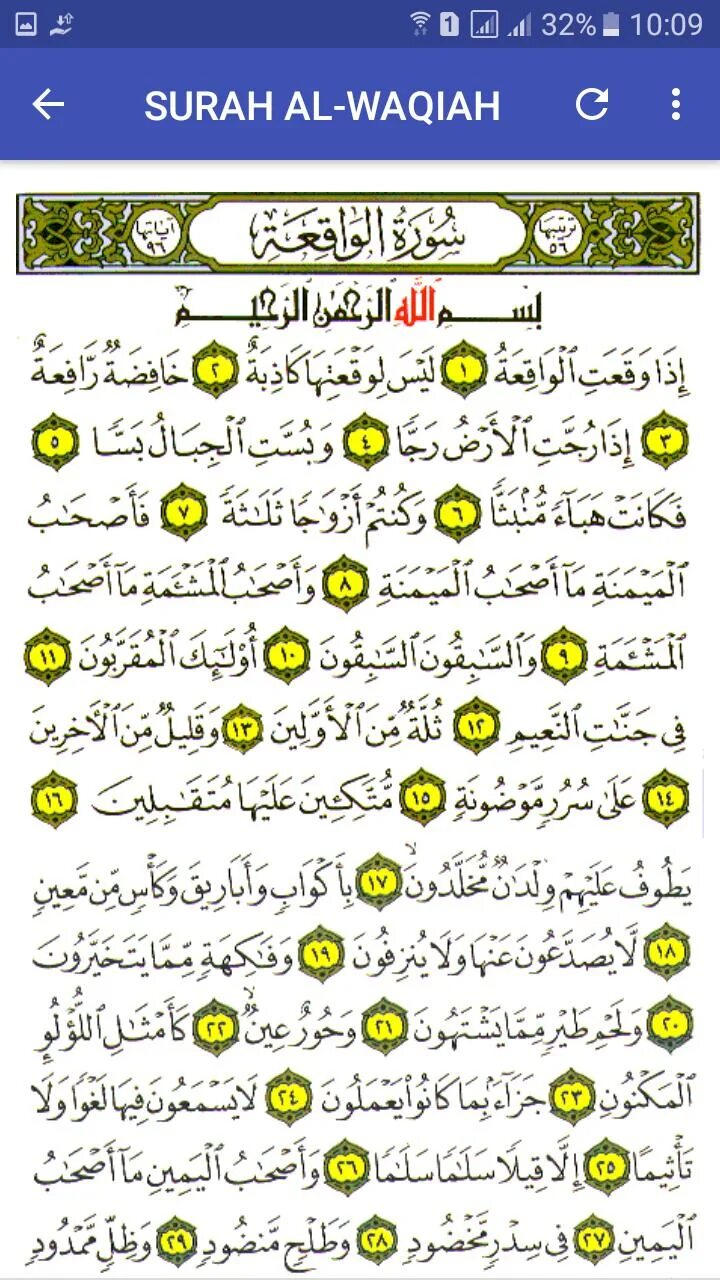 32% 10:09
SURAH AL-WAQIAH
ترتيبها ٥٦ سُورَةُ الوَاقِعَةِ آياتها ٩٦
بِسْمِ اللَّهِ الرَّحْمَٰنِ الرَّحِيمِ
إِذَا وَقَعَتِ ٱلْوَاقِعَةُ ١ لَيْسَ لِوَقْعَتِهَا كَاذِبَةٌ ٢ خَافِضَةٌ رَّافِعَةٌ
٣ إِذَا رُجَّتِ ٱلْأَرْضُ رَجًّا ٤ وَبُسَّتِ ٱلْجِبَالُ بَسًّا ٥
فَكَانَتْ هَبَآءً مُّنۢبَثًّا ٦ وَكُنتُمْ أَزْوَٰجًا ثَلَٰثَةً ٧ فَأَصْحَٰبُ
ٱلْمَيْمَنَةِ مَآ أَصْحَٰبُ ٱلْمَيْمَنَةِ ٨ وَأَصْحَٰبُ ٱلْمَشْـَٔمَةِ مَآ أَصْحَٰبُ
ٱلْمَشْـَٔمَةِ ٩ وَٱلسَّٰبِقُونَ ٱلسَّٰبِقُونَ ١٠ أُو۟لَٰٓئِكَ ٱلْمُقَرَّبُونَ ١١
فِى جَنَّٰتِ ٱلنَّعِيمِ ١٢ ثُلَّةٌ مِّنَ ٱلْأَوَّلِينَ ١٣ وَقَلِيلٌ مِّنَ ٱلْأَخِرِينَ
١٤ عَلَىٰ سُرُرٍ مَّوْضُونَةٍ ١٥ مُّتَّكِـِٔينَ عَلَيْهَا مُتَقَٰبِلِينَ ١٦
يَطُوفُ عَلَيْهِمْ وِلْدَٰنٌ مُّخَلَّدُونَ ١٧ بِأَكْوَابٍ وَأَبَارِيقَ وَكَأْسٍ مِّن مَّعِينٍ
١٨ لَّا يُصَدَّعُونَ عَنْهَا وَلَا يُنزِفُونَ ١٩ وَفَٰكِهَةٍ مِّمَّا يَتَخَيَّرُونَ
٢٠ وَلَحْمِ طَيْرٍ مِّمَّا يَشْتَهُونَ ٢١ وَحُورٌ عِينٌ ٢٢ كَأَمْثَٰلِ ٱللُّؤْلُؤِ
ٱلْمَكْنُونِ ٢٣ جَزَآءًۢ بِمَا كَانُوا۟ يَعْمَلُونَ ٢٤ لَا يَسْمَعُونَ فِيهَا لَغْوًا وَلَا
تَأْثِيمًا ٢٥ إِلَّا قِيلًا سَلَٰمًا سَلَٰمًا ٢٦ وَأَصْحَٰبُ ٱلْيَمِينِ مَآ أَصْحَٰبُ
ٱلْيَمِينِ ٢٧ فِى سِدْرٍ مَّخْضُودٍ ٢٨ وَطَلْحٍ مَّنضُودٍ ٢٩ وَظِلٍّ مَّمْدُودٍ